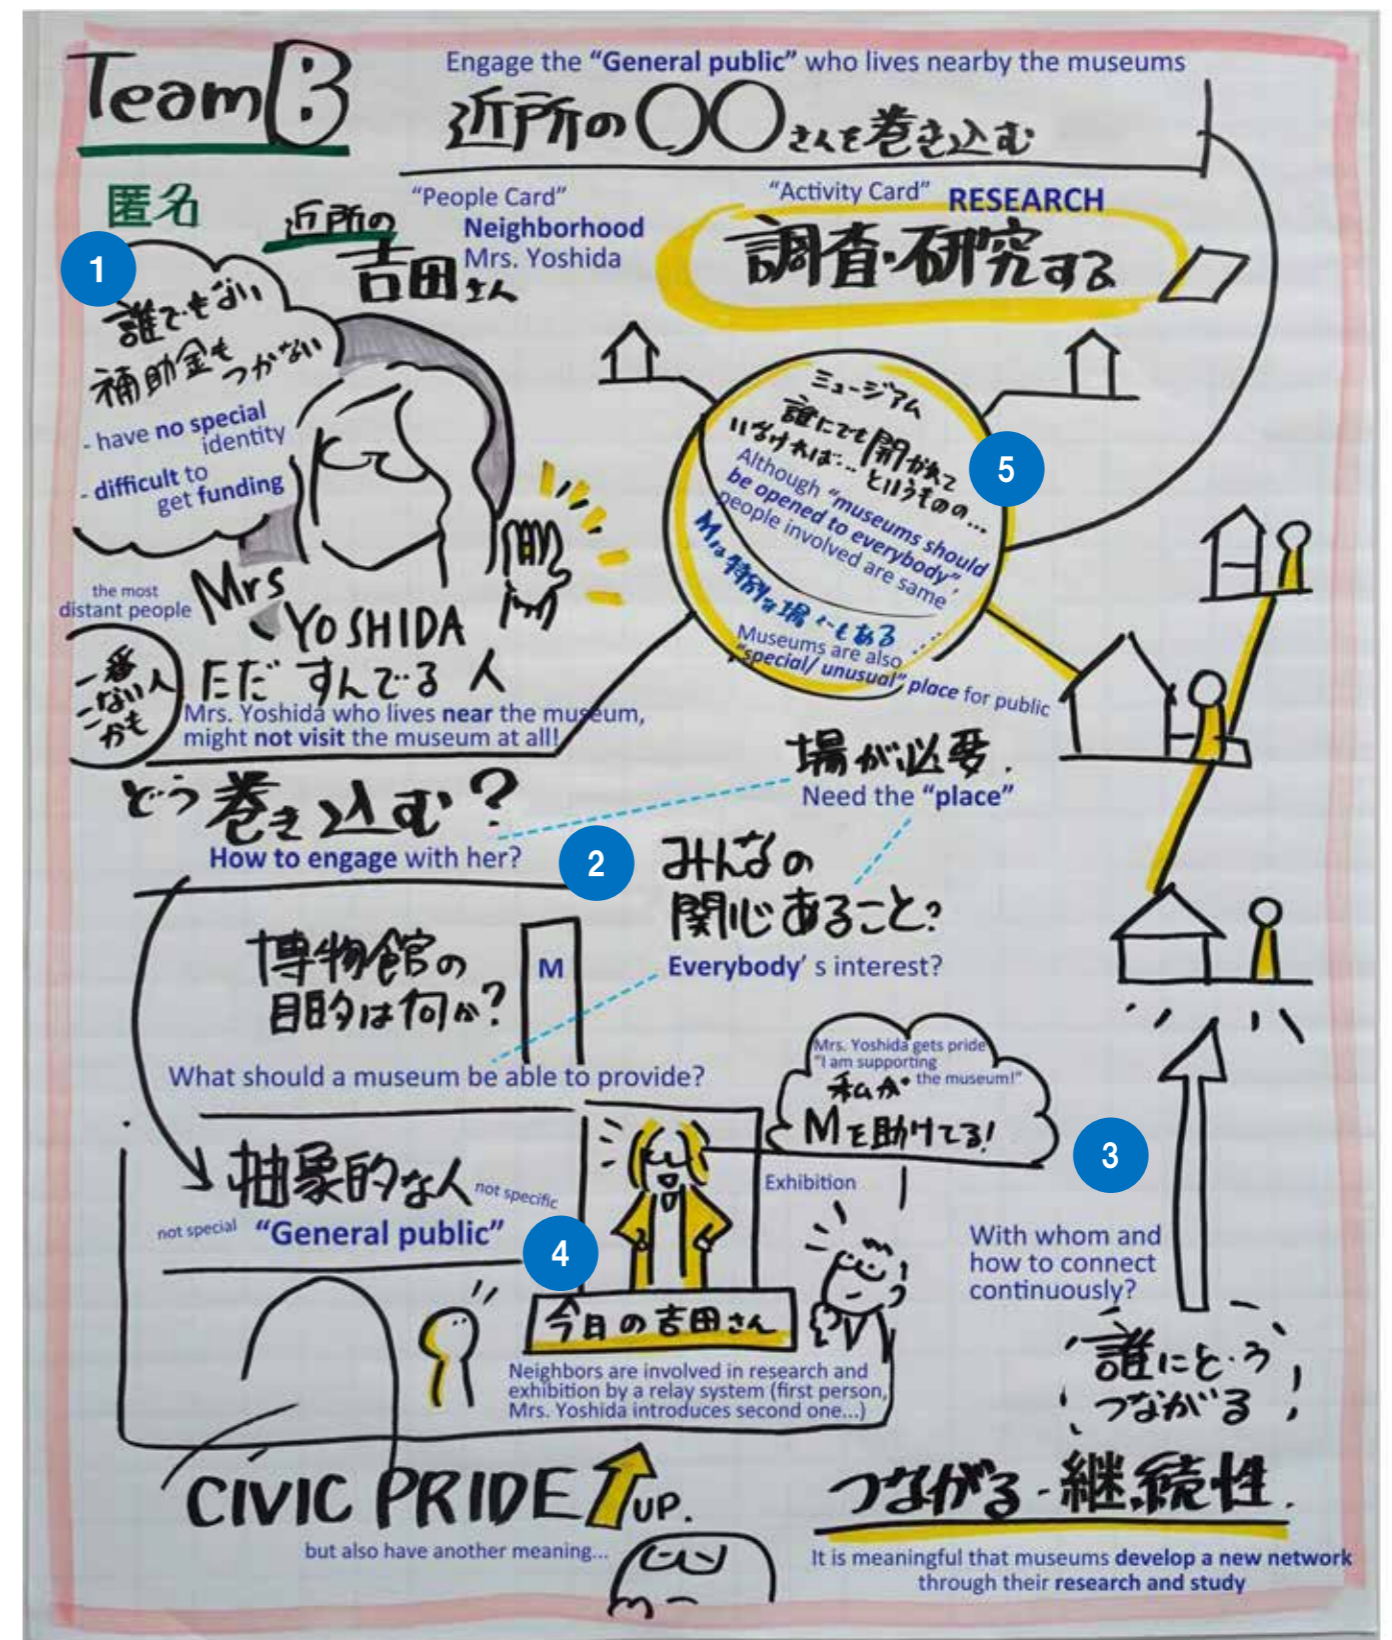 Team B
Engage the “General public” who lives nearby the museums
近所の〇〇さんを巻き込む
匿名
近所の
吉田さん
“People Card”
Neighborhood
Mrs. Yoshida
“Activity Card” RESEARCH
調査・研究する
1
誰でもない
補助金も
つかない
- have no special
identity
- difficult to
get funding
the most
distant people
Mrs
YOSHIDA
一番
こない人
かも
ただ すんでる 人
Mrs. Yoshida who lives near the museum,
might not visit the museum at all!
ミュージアム
誰にでも開かれて
いなければ…というものの…
5
Although “museums should
be opened to everybody”,
people involved are same
Mは特別な場でもある
Museums are also ....
“special/ unusual” place for public
どう巻き込む?
How to engage with her?
2
場が必要.
Need the “place”
みんなの
関心あること?
Everybody’ s interest?
博物館の
目的は何か?
M
What should a museum be able to provide?
Mrs. Yoshida gets pride
“I am supporting
the museum!”
私が
Mを助けてる!
3
抽象的な人
not specific
not special “General public”
4
Exhibition
今日の吉田さん
Neighbors are involved in research and
exhibition by a relay system (first person,
Mrs. Yoshida introduces second one...)
With whom and
how to connect
continuously?
誰にどう
つながる
CIVIC PRIDE UP.
but also have another meaning...
つながる・継続性.
It is meaningful that museums develop a new network
through their research and study